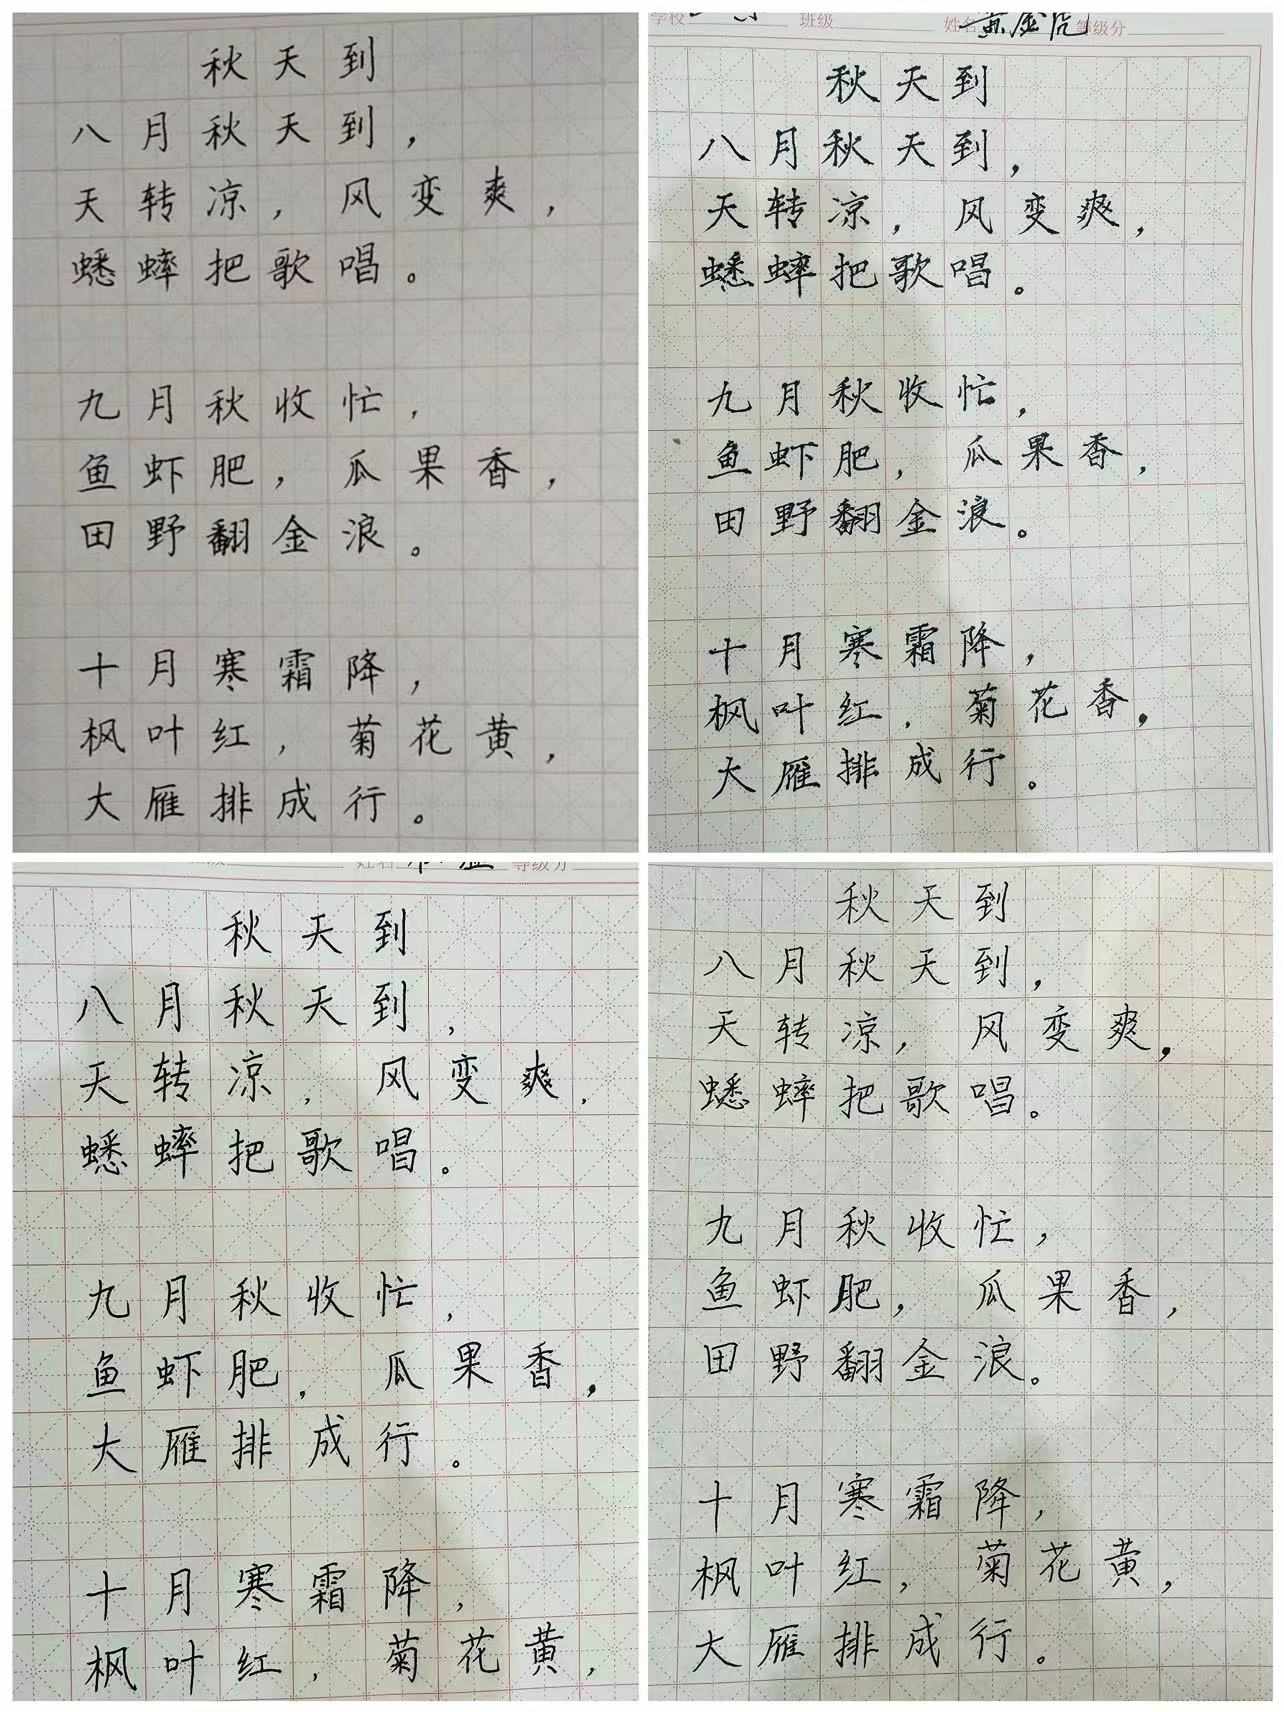 秋天到
八月秋天到，
天转凉，风变爽，
蟋蟀把歌唱。
九月秋收忙，
鱼虾肥，瓜果香，
田野翻金浪。
十月寒霜降，
枫叶红，菊花黄，
大雁排成行。
学校 班级 姓名 等级分
秋天到
八月秋天到，
天转凉，风变爽，
蟋蟀把歌唱。
九月秋收忙，
鱼虾肥，瓜果香，
田野翻金浪。
十月寒霜降，
枫叶红，菊花香，
大雁排成行。
姓名 等级分
秋天到
八月秋天到，
天转凉，风变爽，
蟋蟀把歌唱。
九月秋收忙，
鱼虾肥，瓜果香，
大雁排成行。
十月寒霜降，
枫叶红，菊花黄，
秋天到
八月秋天到，
天转凉，风变爽，
蟋蟀把歌唱。
九月秋收忙，
鱼虾肥，瓜果香，
田野翻金浪。
十月寒霜降，
枫叶红，菊花黄，
大雁排成行。